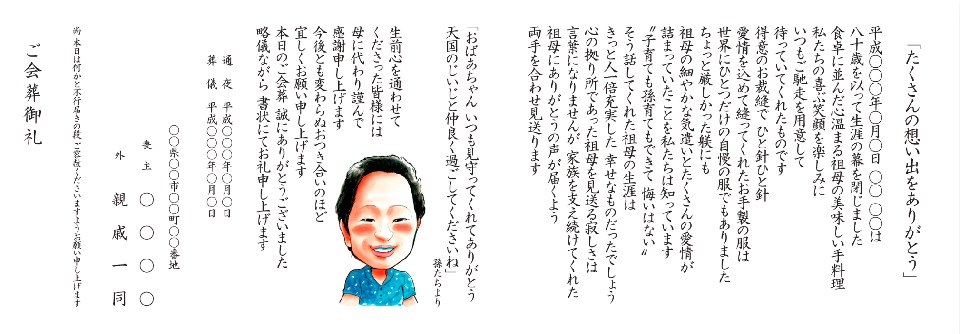 「たくさんの想い出をありがとう」
平成〇〇〇年〇月〇日 〇〇 〇〇は
八十歳を以って生涯の幕を閉じました
食卓に並んだ心温まる祖母の美味しい手料理
私たちの喜ぶ笑顔を楽しみに
いつもご馳走を用意して
待っていてくれたものです
得意のお裁縫で ひと針ひと針
愛情を込めて縫ってくれたお手製の服は
世界にひとつだけの自慢の服でもありました
ちょっと厳しかった躾にも
祖母の細やかな気遣いとたくさんの愛情が
詰まっていたことを私たちは知っています
〝子育ても孫育てもできて 悔いはない〟
そう話してくれた祖母の生涯は
きっと人一倍充実した 幸せなものだったでしょう
心の拠り所であった祖母を見送る寂しさは
言葉になりませんが 家族を支え続けてくれた
祖母にありがとうの声が届くよう
両手を合わせ見送ります
「おばあちゃん いつも見守ってくれてありがとう
天国のじいじと仲良く過ごしてくださいね」
孫たちより
生前心を通わせて
くださった皆様には
母に代わり謹んで
感謝申し上げます
今後とも変わらぬおつき合いのほど
宜しくお願い申し上げます
本日のご会葬 誠にありがとうございました
略儀ながら 書状にてお礼申し上げます
通 夜 平成〇〇〇年〇月〇日
葬 儀 平成〇〇〇年〇月〇日
〇〇県〇〇市〇〇町〇〇番地
喪主 〇 〇 〇 〇
外 親 戚 一 同
尚 本日は何かと不行届きの段 ご容赦くださいますようお願い申し上げます
ご会葬御礼